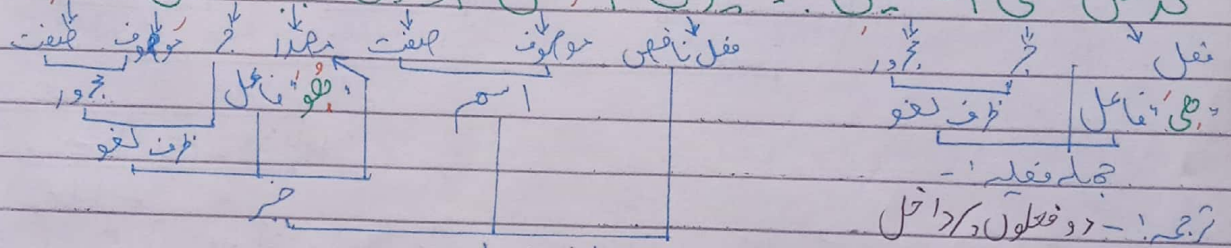 فعل جر مجرور فعل ناقص موصوف صفت مصدر جر موصوف صفت
"ھی" فاعل ظرف لغو اسم "ھُوَ" فاعل مجرور
جملہ فعلیہ :- ظرف لغو
ترجمہ :- دو فعلوں پر داخل خبر